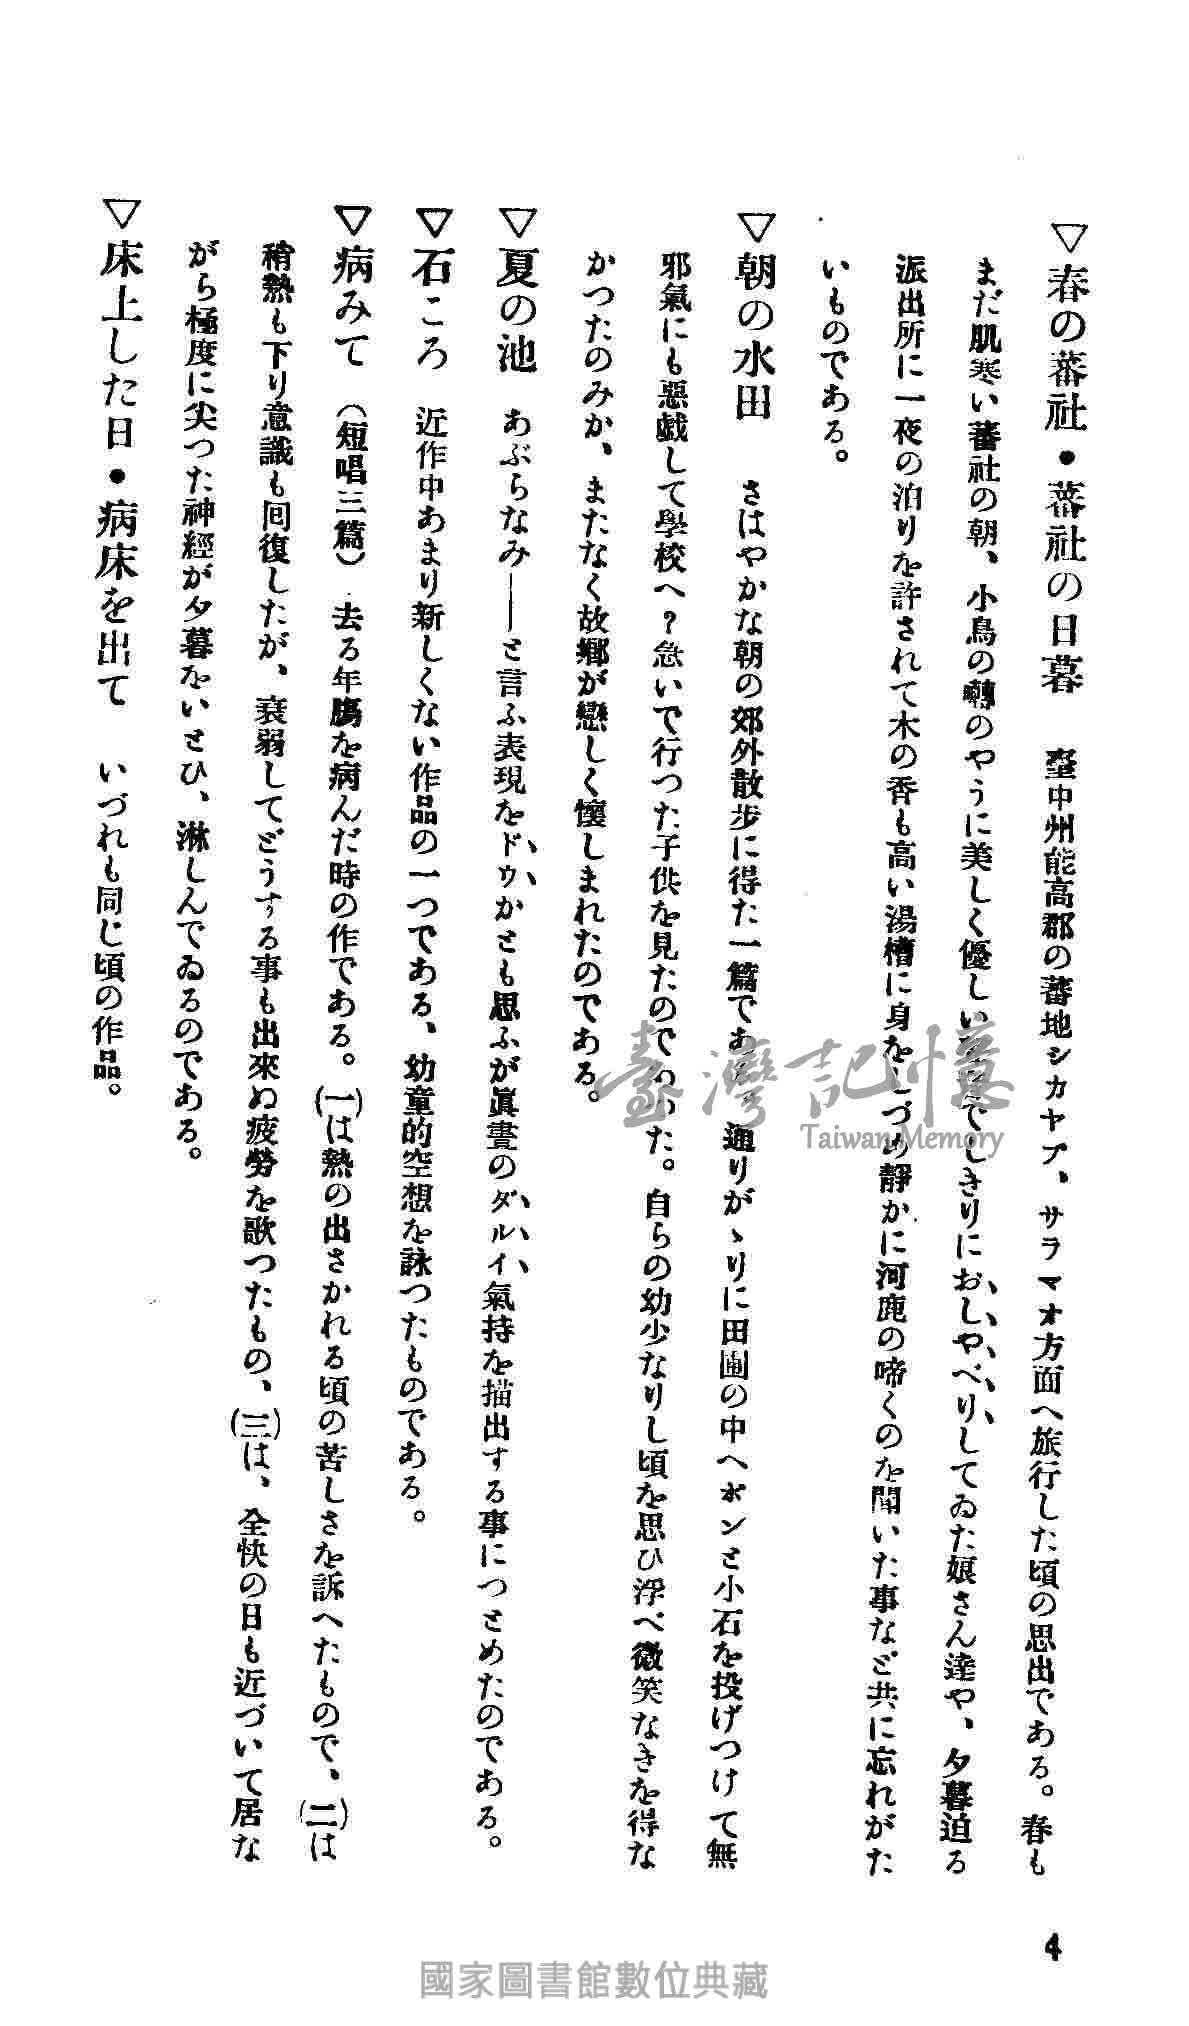 ▽春の蕃社・蕃社の日暮　臺中州能高郡の蕃地シカヤブ、サラマオ方面へ旅行した頃の思出である。春も
まだ肌寒い蕃社の朝、小鳥の囀のやうに美しく優しい でしきりにおしやべりしてゐた娘さん達や、夕暮迫る
派出所に一夜の泊りを許されて木の香も高い湯槽に身をしづめ靜かに河鹿の啼くのを聞いた事など共に忘れがた
いものである。
▽朝の水田　さはやかな朝の郊外散歩に得た一篇である。通りがゝりに田圃の中へポンと小石を投げつけて無
邪氣にも惡戯して學校へ？急いで行つた子供を見たのであつた。自らの幼少なりし頃を思ひ浮べ微笑なきを得な
かつたのみか、またなく故鄕が戀しく懷しまれたのである。
▽夏の池　あぶらなみ――と言ふ表現をドゥかとも思ふが眞晝のダルイ氣持を描出する事につとめたのである。
▽石ころ　近作中あまり新しくない作品の一つである、幼童的空想を詠つたものである。
▽病みて（短唱三篇）去る年膓を病んだ時の作である。(一)は熱の出さかれる頃の苦しさを訴へたもので、(二)は
稍熱も下り意識も囘復したが、衰弱してどうする事も出來ぬ疲勞を歌つたもの、(三)は、全快の日も近づいて居な
がら極度に尖つた神經が夕暮をいとひ、淋しんでゐるのである。
▽床上した日・病床を出て　いづれも同じ頃の作品。
4
臺灣記憶
Taiwan Memory
國家圖書館數位典藏